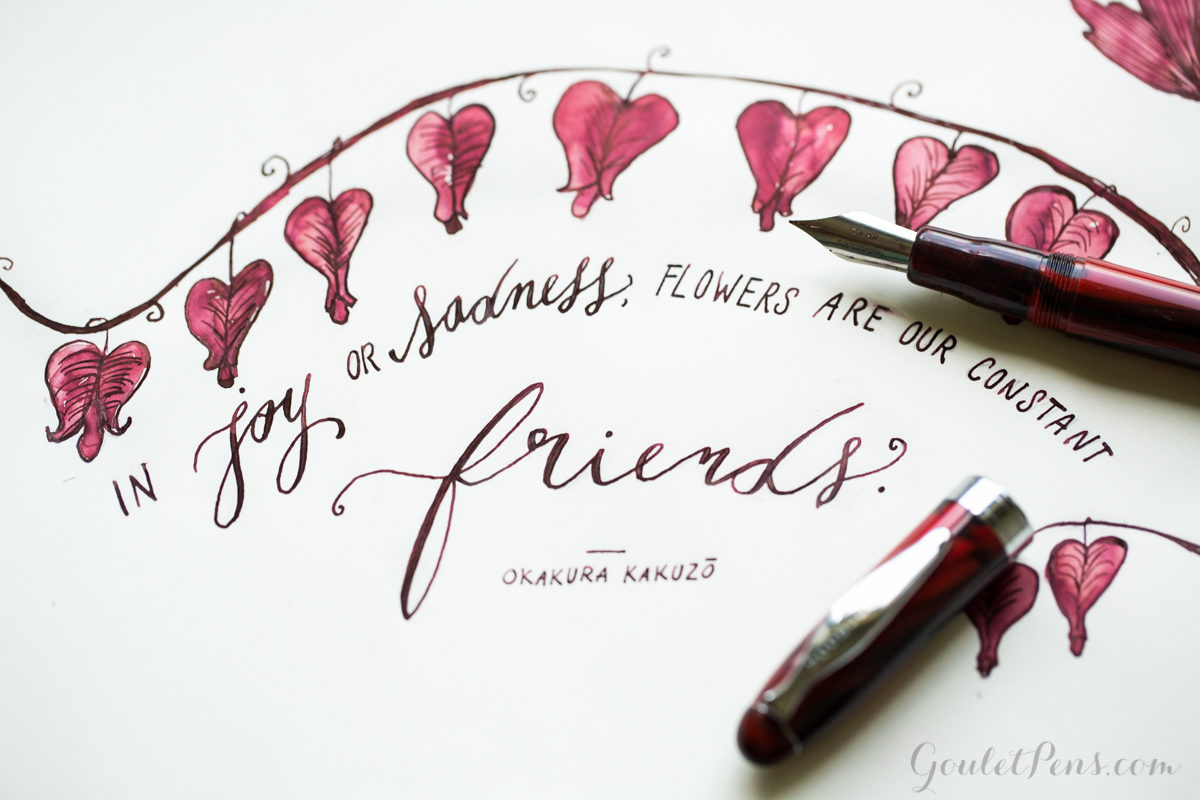 IN joy OR sadness, FLOWERS ARE OUR CONSTANT
friends.
OKAKURA KAKUZŌ
GouletPens.com